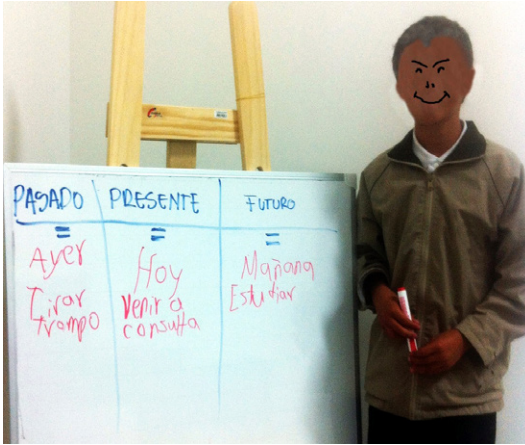 PASADO PRESENTE FUTURO
= = =
Ayer Hoy Mañana
Tirar trompo Venir a consulta Estudiar